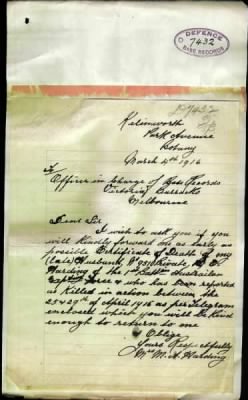 DEFENCE
7432
BASE RECORDS
7432
Kelinworth
Park Avenue
Botany
March 4th 1916
To
Officer in Charge of Base Records
Victoria Barracks
Melbourne
Dear Sir
I wish to ask you if you
will Kindly forward on as early as
possible Certificate of Death of my
(late) Husband,
Harding of the 1st Battn Australian
Force & who has been reported
as Killed in action between the
25 & 29th of April 1915 as per Telegram
enclosed which you will be Kind
enough to return to me
& Oblige
Yours Respectfully
Mrs M. A. Harding